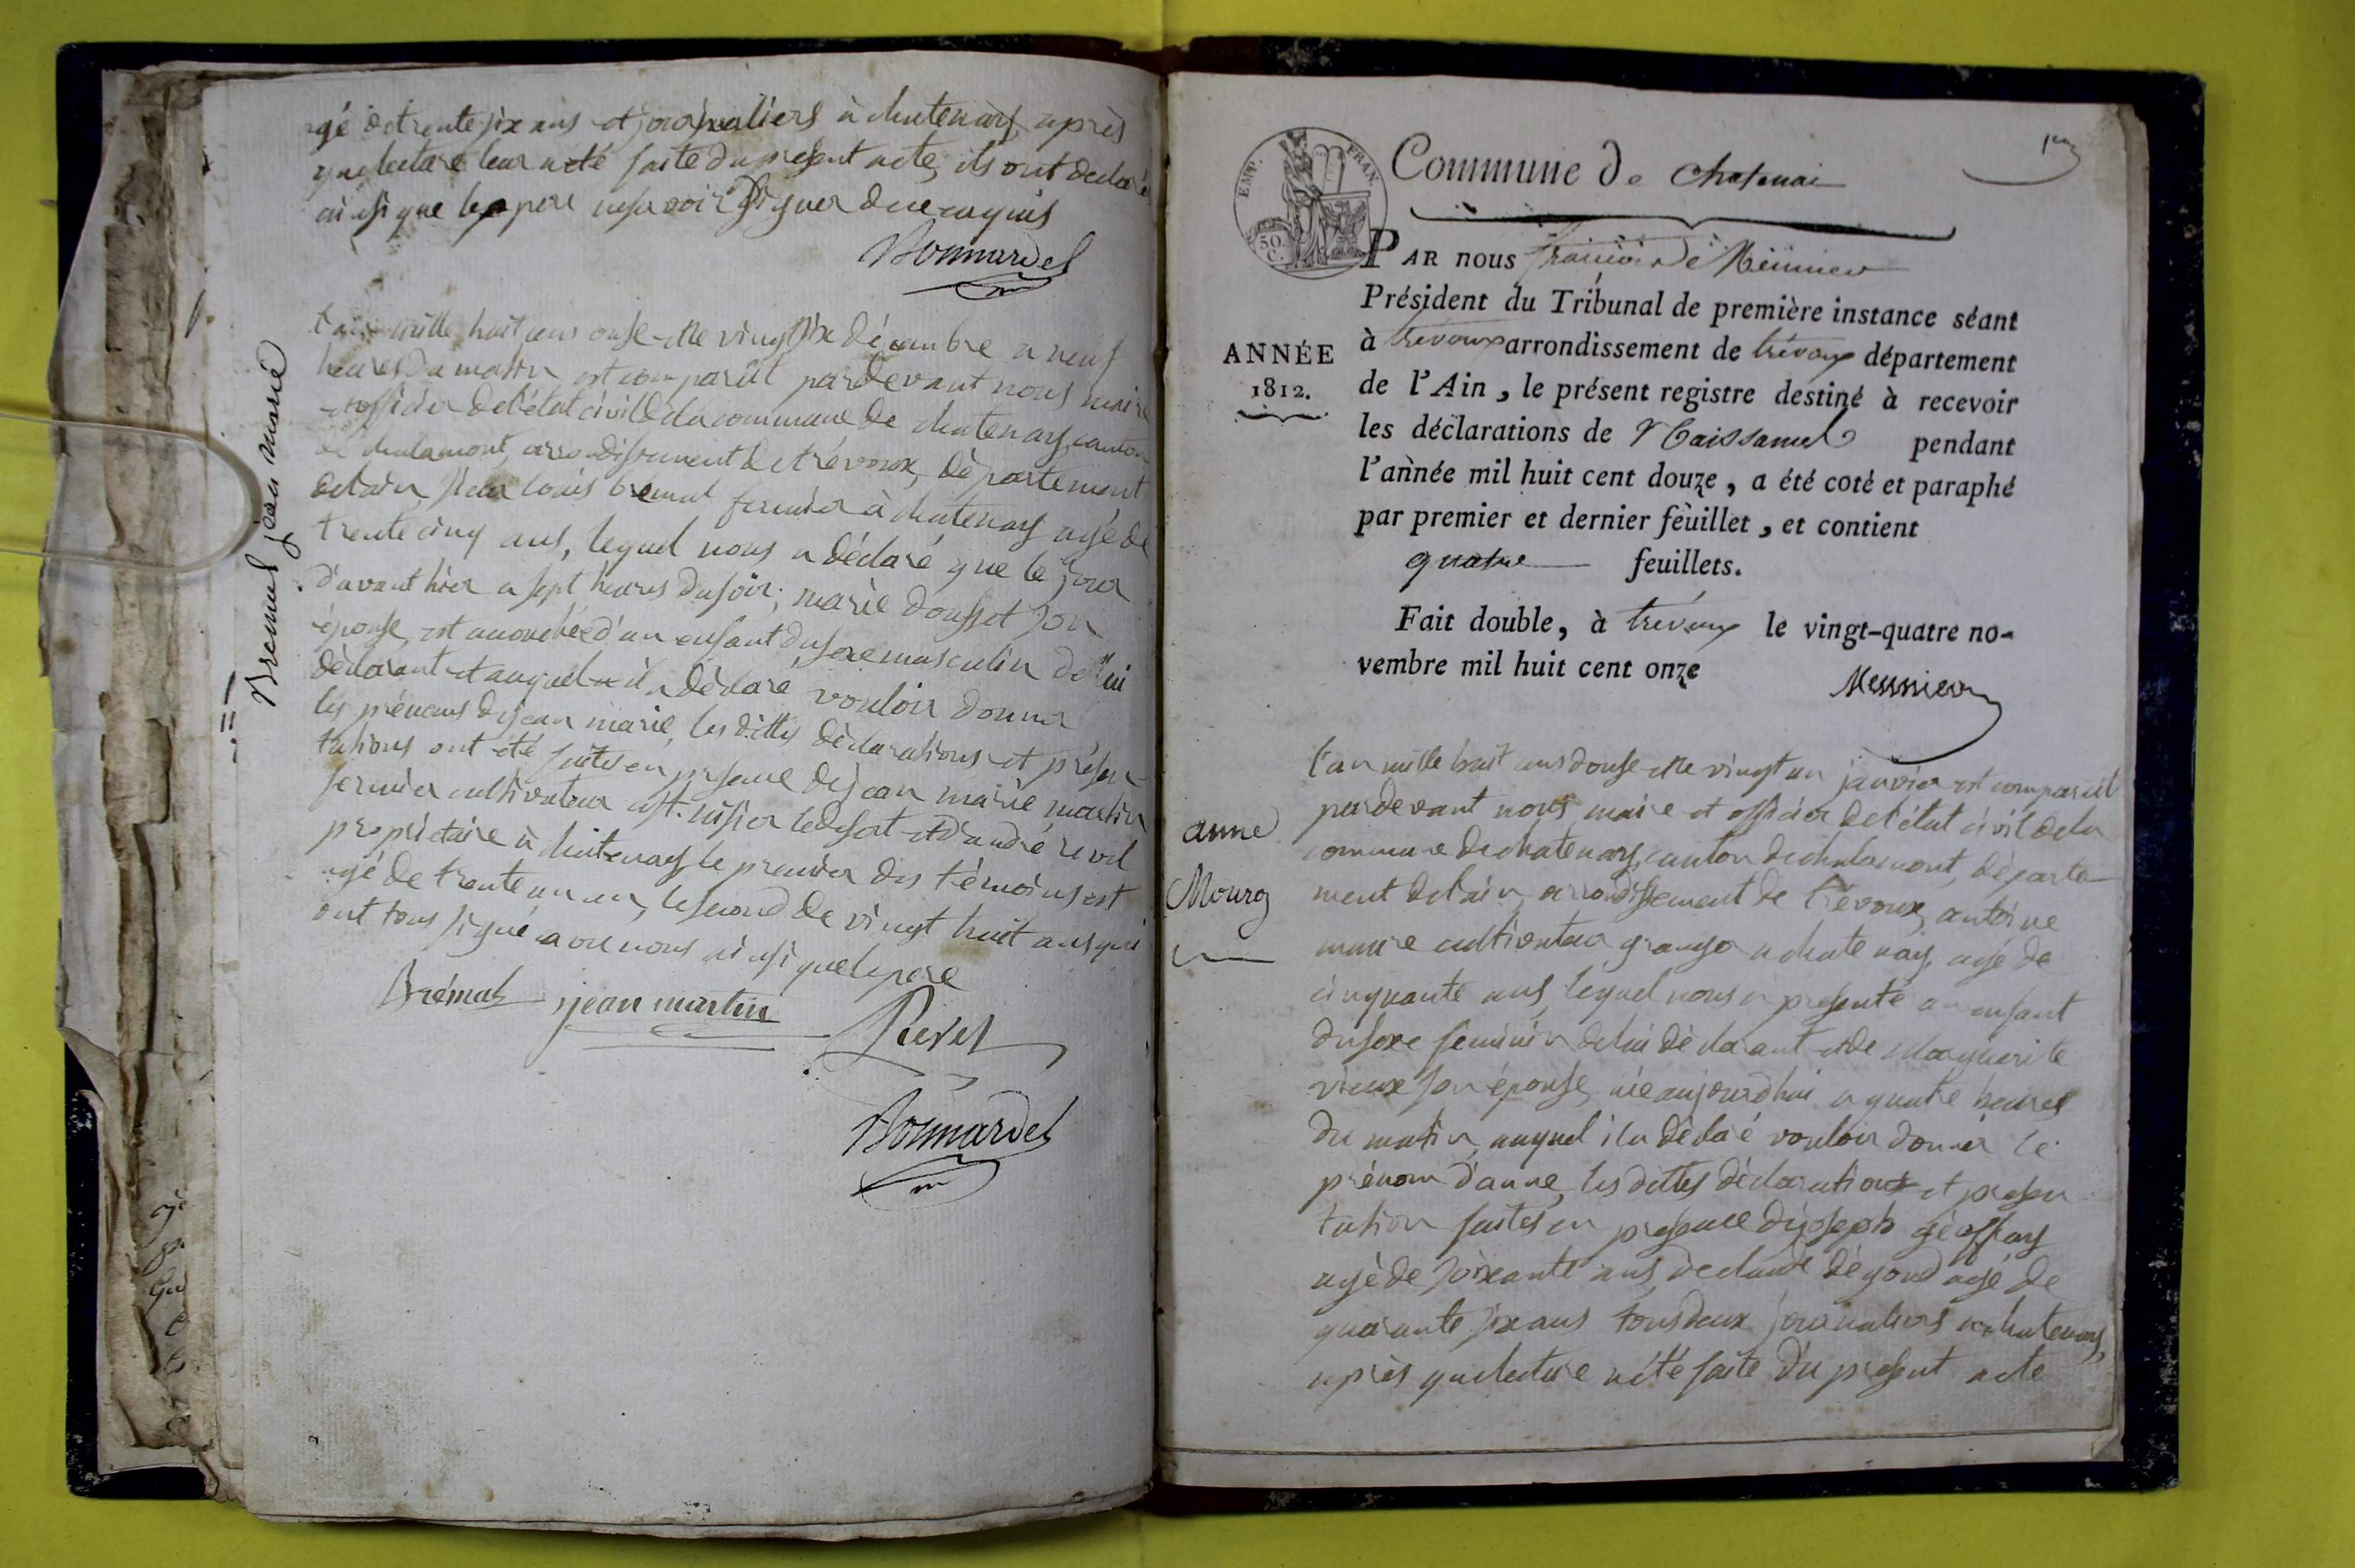 agé de trente six ans et journaliers à chatenay, après
que lecture leur a été faite du présent acte, ils ont déclaré
ainsi que le pere ne savoir signer de ce enquis
Bonnardel
Bremal jean marie
L'an mille huit cens onse et le vingt six décembre a neuf
heures du matin est comparût pardevant nous maire
et officier de l'état civil de la commune de chatenay, canton
de chalamont, arrondissement de trévoux, département
de l'ain, sieur louis bremal fermier à chatenay agé de
trente cinq ans, lequel nous a déclaré que le jour
d'avant hier a sept heures du soir, marie dousset son
épouse, est accouchée d'un enfant du sexe masculin de lui
déclarant et auquel il a déclaré vouloir donner
les prénoms de jean marie, les dittes déclarations et présen-
tations ont été faites en présence de jean marie martin
fermier cultivateur à st. nisier le desert et d'andré revel
propriétaire à chatenay le premier des témoins est
agé de trente un an, le second de vingt huit ans qui
ont tous signé avec nous ainsi que le pere
Brémal jean martin
Revel
Bonnardel
1er
EMP. FRAN.
50 C.
Commune de chatenai
PAR nous
Président du Tribunal de première instance séant
à trévoux arrondissement de trévoux département
ANNÉE
1812.
de l'Ain, le présent registre destiné à recevoir
les déclarations de Naissances pendant
l'année mil huit cent douze, a été coté et paraphé
par premier et dernier feuillet, et contient
quatre feuillets.
Fait double, à trévoux le vingt-quatre no-
vembre mil huit cent onze
anne
Mourg
L'an mille huit cens douse et le vingt un janvier est comparût
pardevant nous maire et officier de l'état civil de la
commune de chatenay, canton de chalamont, départe-
ment de l'ain, arrondissement de trévoux, antoine
cultivateur granger a chatenay, agé de
cinquante ans, lequel nous a présenté un enfant
du sexe feminin de lui déclarant et de marguerite
vieux son épouse, née aujourdhui a quatre heures
du matin, auquel il a déclaré vouloir donner le
prénom d'anne, les dittes déclarations et présen-
tation faites en présence de joseph géoffray
agé de soixante ans, de claude dégoud agé de
quarante six ans tous deux journaliers a chatenay,
après que lecture a été faite du présent acte